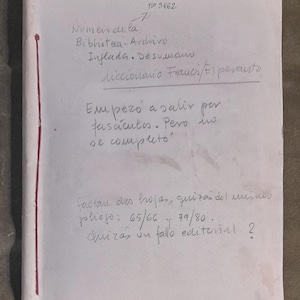 Nº 3462
Número de la
Biblioteca-Archivo
Inglada-Desumano
Diccionario Francés/Esperanto
Empezó a salir por
fascículos. Pero no
se completó
Faltan dos hojas, quizás del mismo
pliego: 65/66 y 79/80.
Quizás un fallo editorial?